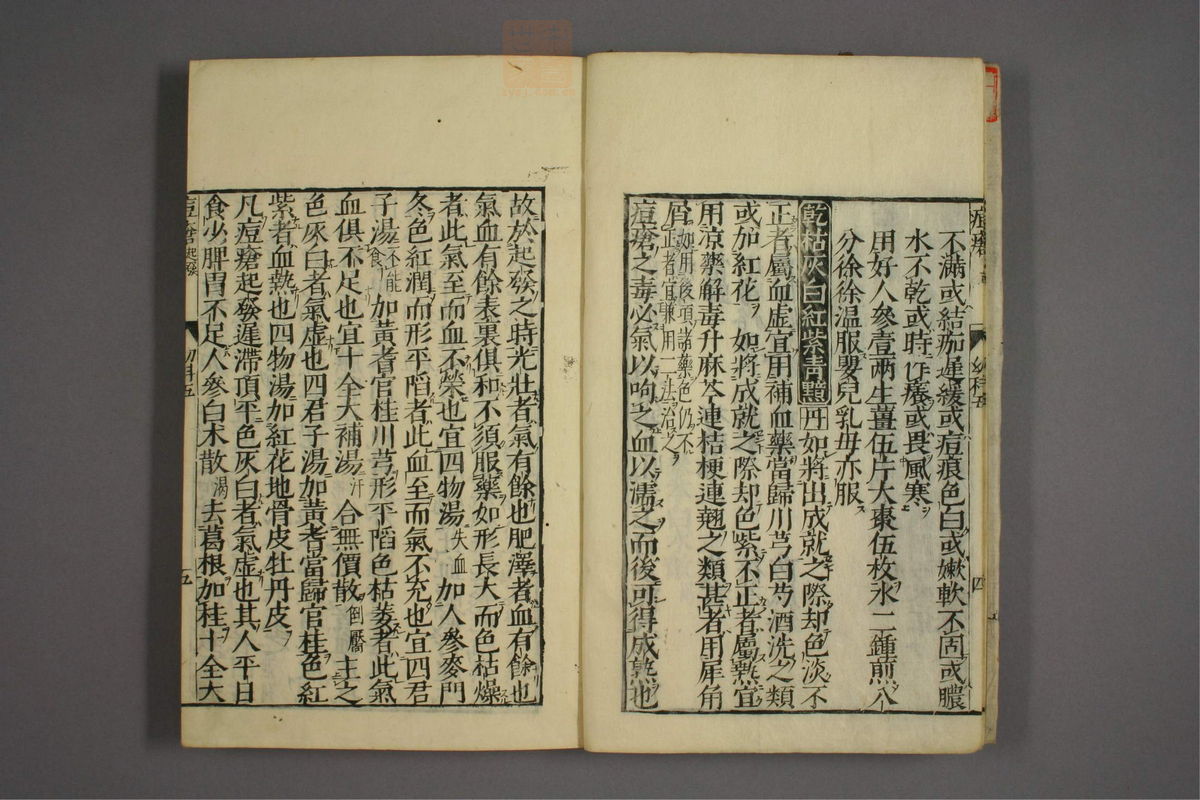 不滿或結痂遲緩或痘痕色白或嫩軟不固或膿
水不乾或時作癢或畏風寒
用好人參壹兩生薑伍片大棗伍枚水二鍾煎八
分徐徐温服嬰兒乳母亦服
乾枯灰白紅紫青黯 丹 如將出成就之際却色淡不
正者屬血虛宜用補血藥當歸川芎白芍酒洗之類
或加紅花 如將成就之際却色紫不正者屬熱宜
用涼藥解毒升麻芩連桔梗連翹之類甚者用犀角
屑 如用後項諸藥色仍不
正者宜兼用二法治之
痘瘡之毒必氣以呴之血以濡之而後可得成熟也
幼科五
四
故於起發之時光壯者氣有餘也肥澤者血有餘也
氣血有餘表裏俱和不須服藥如形長大而色枯燥
者此氣至而血不榮也宜四物湯 失血 加人參麥門
冬色紅潤而形平陷者此血至而氣不充也宜四君
子湯 不能食 加黃耆官桂川芎形平陷色枯萎者此氣
血俱不足也宜十全大補湯 汗 合無價散 倒靨 主之
色灰白者氣虛也四君子湯加黃耆當歸官桂色紅
紫者血熱也四物湯加紅花地骨皮牡丹皮
凡痘瘡起發遲滯頂平色灰白者氣虛也其人平日
食少脾胃不足人參白朮散 渴 去葛根加桂十全大
痘瘡 起發
幼科五
五